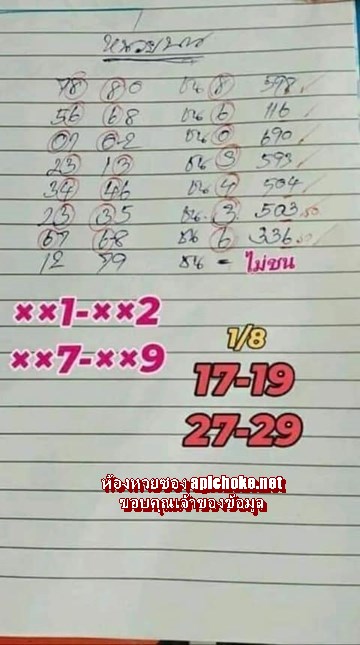 หน่วยบน
78 80 ชน 8 598
56 68 ชน 6 116
01 02 ชน 0 690
23 13 ชน 3 593
34 46 ชน 4 504
23 35 ชน 3 503
67 68 ชน 6 336
12 79 ชน = ไม่ชน
××1-××2
××7-××9
1/8
17-19
27-29
ห้องหวยซอง apichoke.net
ขอบคุณเจ้าของข้อมูล